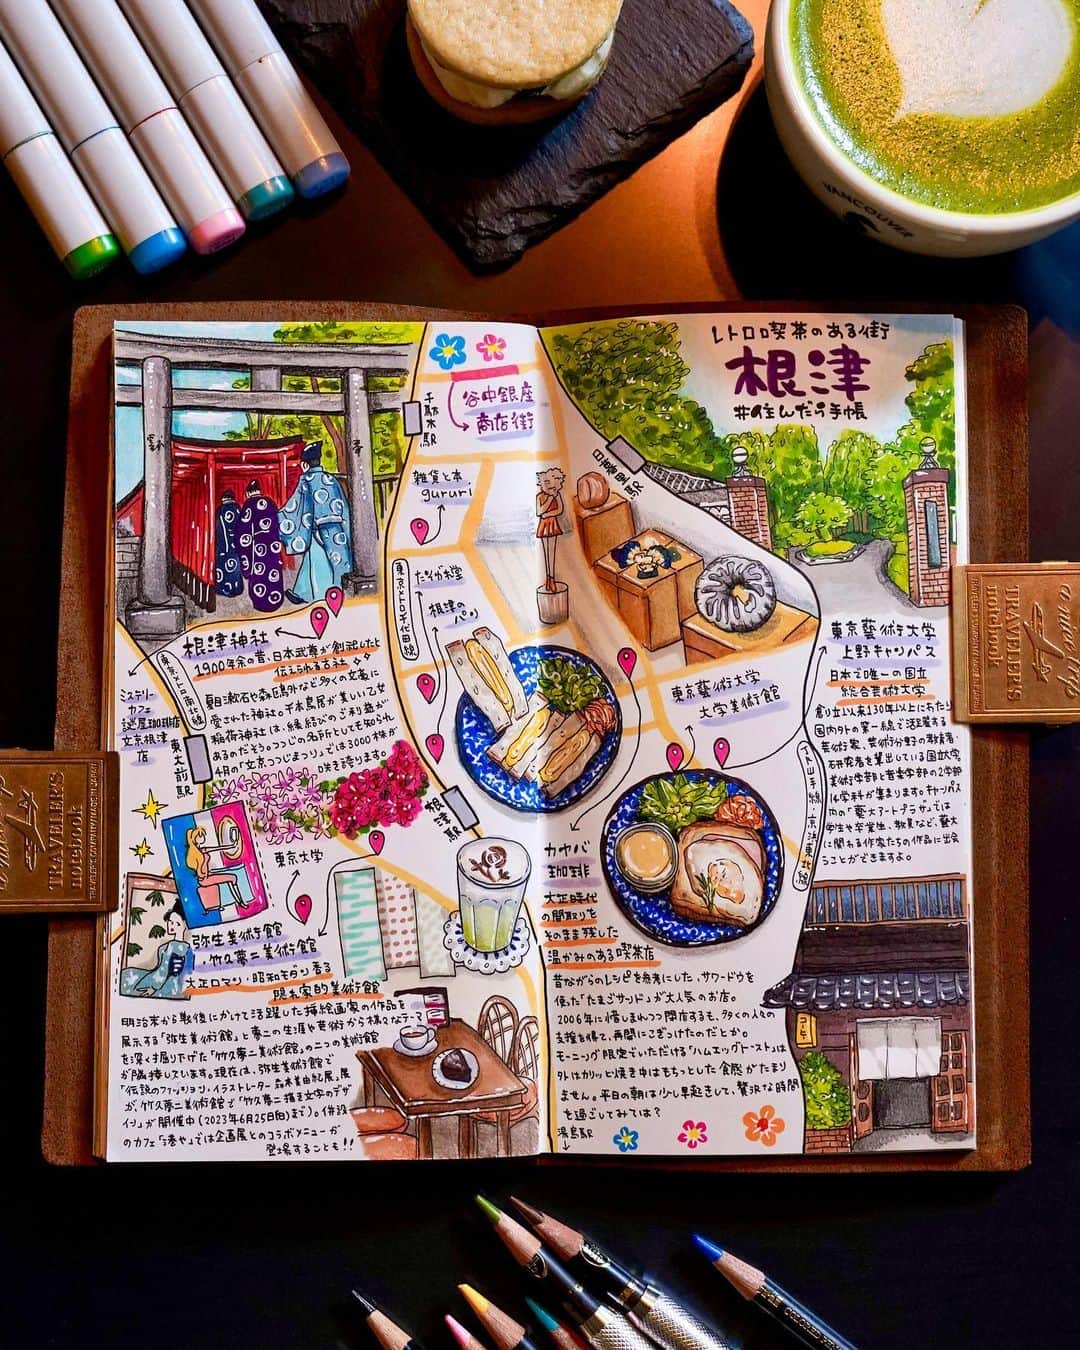 VANCOUVER
レトロ喫茶のある街
根津
#のんだら手帳
谷中銀座
商店街
千駄木駅
雑貨と本
gururi
日暮里駅
東京メトロ千代田線
根津の
パン
根津神社
1900年余の昔、日本武尊が創祀したと
伝えられる古社
夏目漱石や森鴎外など多くの文豪に
愛された神社。千本鳥居が美しい乙女
稲荷神社は、縁結びのご利益が
あるのだそう。つつじの名所としても知られ
4月の「文京つつじまつり」では3000株が
咲き誇ります。
東京メトロ南北線
ミステリー
カフェ
謎屋珈琲店
文京根津
店
東大前駅
根津駅
東京大学
弥生美術館
・竹久夢二美術館
大正ロマン・昭和モダン香る
隠れ家的美術館
明治末から戦後にかけて活躍した挿絵画家の作品を
展示する「弥生美術館」と夢二の生涯や芸術から様々なテーマ
を深く掘り下げた「竹久夢二美術館」の二つの美術館
が隣接しています。現在は、弥生美術館で
「伝説のファッション・イラストレーター 森本美由紀展」展
が、竹久夢二美術館で「竹久夢二描き文字のデザ
イン」が開催中(2023年6月25日(日)まで)。併設
のカフェ「港や」では企画展とのコラボメニューが
登場することも!!
東京藝術大学
大学美術館
東京藝術大学
上野キャンパス
日本で唯一の国立
総合芸術大学
創立以来130年以上にわたり
国内外の第一線で活躍する
芸術家、芸術分野の教育者・
研究者を輩出している国立大学。
美術学部と音楽学部の2学部
14学科が集まります。キャンパス
内の「藝大アートプラザ」では
学生や卒業生、教員など、藝大
に関わる作家たちの作品に出会
うことができますよ。
JR山手線・京浜東北線
カヤバ
珈琲
大正時代
の間取りを
そのまま残した
温かみのある喫茶店
昔ながらのレシピを参考にした、サワードウを
使った「たまごサンド」が大人気のお店。
2006年に惜しまれつつ閉店するも、多くの人々の
支援を得て、再開にこぎつけたのだとか。
モーニング限定でいただける「ハムエッグトースト」は
外はカリッと焼き中はもちっとした食感がたまり
ません。平日の朝は少し早起きして、贅沢な時間
を過ごしてみては?
湯島駅
コーヒー
TRAVELER'S
notebook
TRAVELER'S COMPANY MADE IN JAPAN
TRAVELER'S
notebook